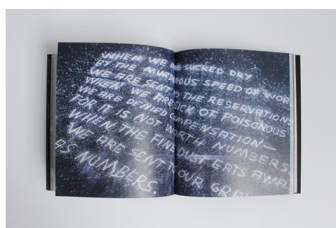 WHEN WE ARE SUCKED DRY
BY THE MURDEROUS SPEED OF WORK
WE ARE SENT TO THE RESERVATIONS
WHEN WE ARE SICK OF POISONOUS
WE ARE DENIED COMPENSATION—
FOR IT IS NOT WORTH NUMBERS.
WHEN THE FINE DUST EATS AWAY
WE ARE SENT OUR
AS NUMBERS.